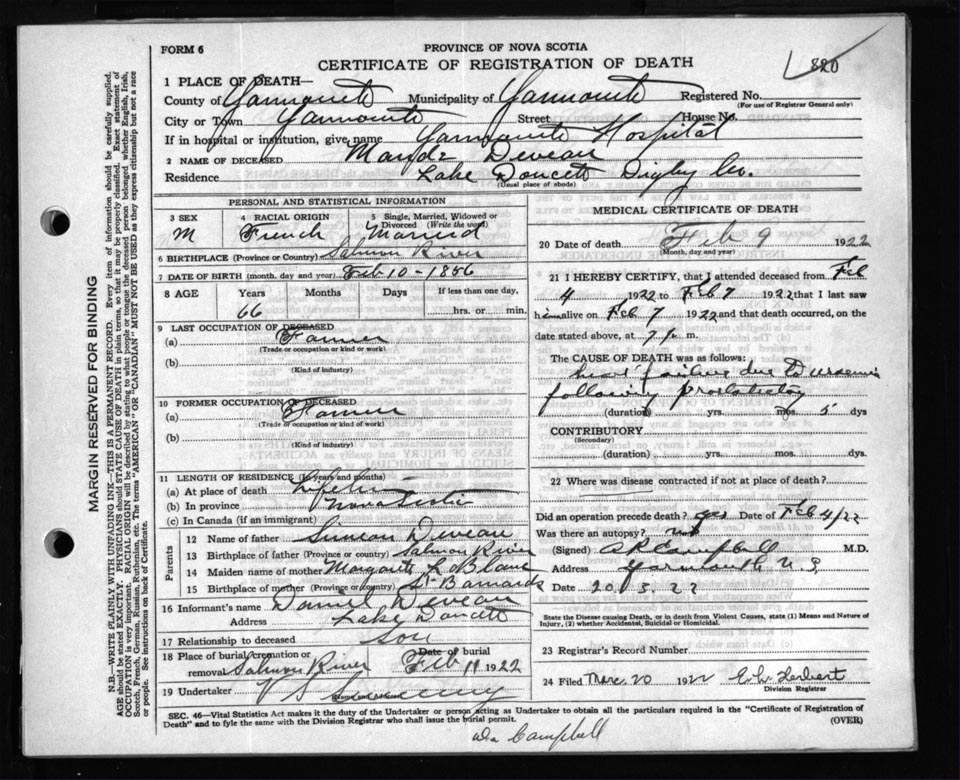 FORM 6
PROVINCE OF NOVA SCOTIA
CERTIFICATE OF REGISTRATION OF DEATH
820
1 PLACE OF DEATH—
County of Yarmouth Municipality of Yarmouth Registered No.
(For use of Registrar General only)
City or Town Yarmouth Street House No.
If in hospital or institution, give name Yarmouth Hospital
2 NAME OF DECEASED Mande Deveau
Residence Lake Doucette Digby Co.
(Usual place of abode)
PERSONAL AND STATISTICAL INFORMATION
3 SEX 4 RACIAL ORIGIN 5 Single, Married, Widowed or Divorced (Write the word)
M French Married
6 BIRTHPLACE (Province or Country) Salmon River
7 DATE OF BIRTH (month, day and year) Feb 10 - 1856
8 AGE Years Months Days If less than one day,
66 hrs. or min.
9 LAST OCCUPATION OF DECEASED
(a) Farmer
(Trade or occupation or kind or work)
(b)
(Kind of industry)
10 FORMER OCCUPATION OF DECEASED
(a) Farmer
(Trade or occupation or kind of work)
(b)
(Kind of industry)
11 LENGTH OF RESIDENCE (In years and months)
(a) At place of death
(b) In province Nova Scotia
(c) In Canada (if an immigrant)
Parents
12 Name of father Simeon Deveau
13 Birthplace of father (Province or country) Salmon River
14 Maiden name of mother Margaret LeBlanc
15 Birthplace of mother (Province or country) St Barnards
16 Informant's name Daniel Deveau
Address Lake Doucett
17 Relationship to deceased Son
18 Place of burial, cremation or removal Salmon River Date of burial Feb 11 1922
19 Undertaker
MEDICAL CERTIFICATE OF DEATH
20 Date of death Feb 9 1922
(Month, day and year)
21 I HEREBY CERTIFY, that I attended deceased from Feb
4 1922 to Feb 7 1922 that I last saw
him alive on Feb 7 1922 and that death occurred, on
date stated above, at 7 p m.
The CAUSE OF DEATH was as follows:
heart failure due to uraemia
following
(duration) yrs. mos. 5 dys
CONTRIBUTORY
(Secondary)
(duration) yrs. mos. dys
22 Where was disease contracted if not at place of death?
Did an operation precede death? yes Date of Feb 4/22
Was there an autopsy? no
(Signed) A R Campbell M.D.
Address Yarmouth N.S
Date 20.3.22
State the Disease causing Death, or in death from Violent Causes, state (1) Means and Nature of
Injury, (2) whether Accidental, Suicidal or Homicidal.
23 Registrar's Record Number
24 Filed Mar. 20 1922
Division Registrar
SEC. 46—Vital Statistics Act makes it the duty of the Undertaker or person acting as Undertaker to obtain all the particulars required in the "Certificate of Registration of
Death" and to fyle the same with the Division Registrar who shall issue the burial permit. (OVER)
Campbell
MARGIN RESERVED FOR BINDING
N.B.—WRITE PLAINLY WITH UNFADING INK—THIS IS A PERMANENT RECORD. Every item of information should be carefully supplied.
AGE should be stated EXACTLY. PHYSICIANS should STATE CAUSE OF DEATH in plain terms, so that it may be properly classified. Exact statement of
OCCUPATION is very important. RACIAL ORIGIN will be described by stating to what people or tongue the deceased person belonged whether English, Irish,
Scotch, French, German, Russian, Ruthenian, etc. The terms "AMERICAN" OR "CANADIAN" MUST NOT BE USED as they express citizenship but not a race
or people. See instructions on back of Certificate.